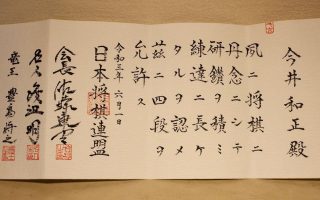 今井和正殿
夙ニ将棋ニ
丹念ニシテ
研鑽ヲ積ミ
練達ニ長ケ
タルヲ認メ
茲ニ四段ヲ
允許ス
令和三年六月一日
日本将棋連盟
会長佐藤康光
名人渡辺明
竜王豊島将之